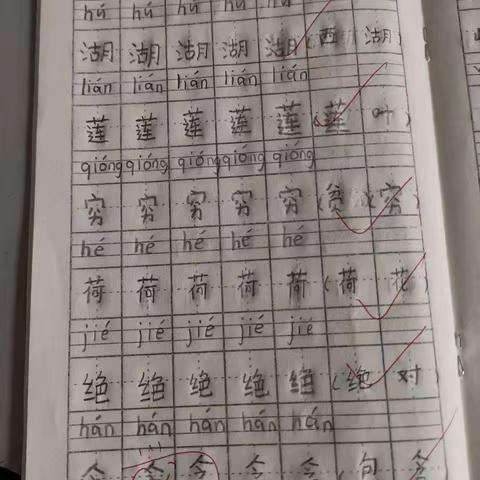 hú hú hú hú hú
湖 湖 湖 湖 湖 (西 湖)
lián lián lián lián lián
莲 莲 莲 莲 莲 (莲 叶)
qióng qióng qióng qióng qióng
穷 穷 穷 穷 穷 (贫 穷)
hé hé hé hé hé
荷 荷 荷 荷 荷 (荷 花)
jié jié jié jié jié
绝 绝 绝 绝 绝 (绝 对)
hán hán hán hán hán
含 含 含 含 含 (包 含